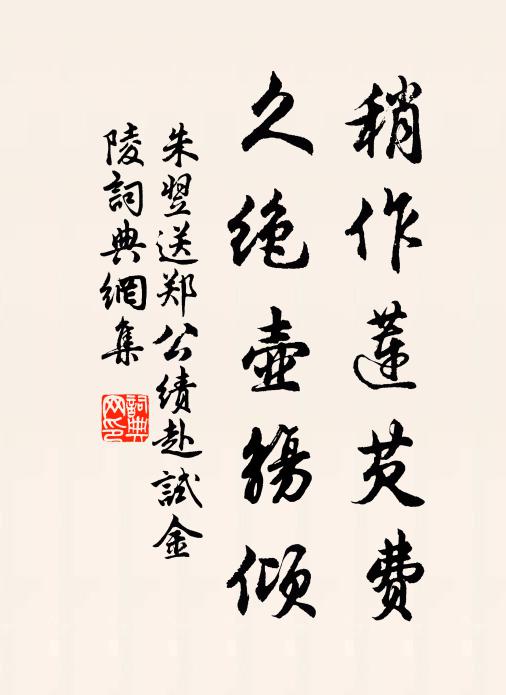 稍作莲芡费
久绝壶觞倾
朱翌送郑公绩赴試金
陵詞典網集
詞典
网印